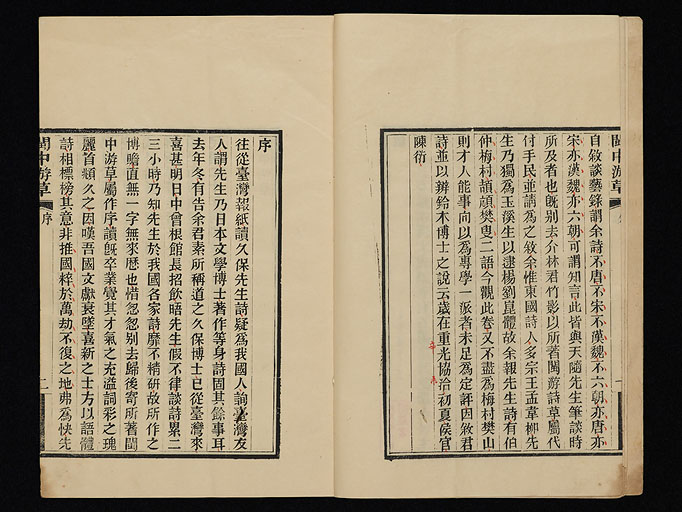 閩中游草
自敘談藝錄謂余詩不唐不宋不漢魏不六朝亦唐亦
宋亦漢魏亦六朝可謂知言此皆與天隨先生筆談時
所及者也旣别去介林君竹影以所著閩游詩草屬代
付手民並請爲之敘余惟東國詩人多宗王孟韋柳先
生乃獨爲玉溪生以逮楊劉崑體故余報先生詩有伯
仲梅村頡頏樊叟二語今觀此卷又不盡爲梅村樊山
則才人能事向以爲專學一派者未足爲定評因敘君
詩並以辨鈴木博士之說云歲在重光協洽初夏侯官
陳衍
序
往從臺灣報紙讀久保先生詩疑爲我國人詢臺灣友
人謂先生乃日本文學博士著作等身詩固其餘事耳
去年冬有告余君素所稱道之久保博士已從臺灣來
喜甚明日中曾根館長招飲晤先生假不律談詩累二
三小時乃知先生於我國各家詩靡不精研故所作之
博贍直無一字無來歷也惜忽忽别去歸後寄所著閩
中游草屬作序讀旣卒業覺其才氣之充溢詞彩之瑰
麗首頫久之因嘆吾國文獻衰墜喜新之士方以語體
詩相標榜其意非推國粹於萬劫不復之地弗爲快先
閩中游草
序
二